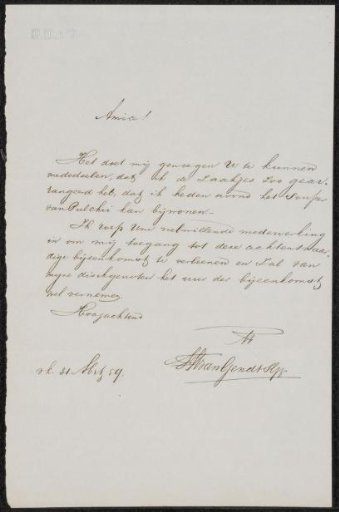 Amice!
Het doet mij genoegen U te kunnen
mededeelen, dat ik de zaakjes zoo gear-
rangeerd heb, dat ik heden avond het Souper
van Pulchri kan bijwonen.
Ik roep Uwe welwillende medewerking
in om mij toegang tot deze achtenswaar-
dige bijeenkomst te verleenen en zal van
mijne het uur der bijeenkomst
wel vernemen
Hoogachtend
van Gendt
31 59.